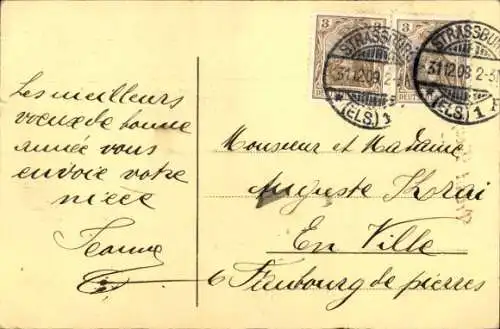 Les meilleurs
vœux de bonne
année vous
envoie votre
nièce
Jeanne
3 3
STRASSBURG
31.12.09.2-3
* (ELS.) 1
STRASSBURG
31.12.09.2-3
* (ELS.) 1
Monsieur et Madame
Auguste Krai
En Ville
6 Faubourg de pierres